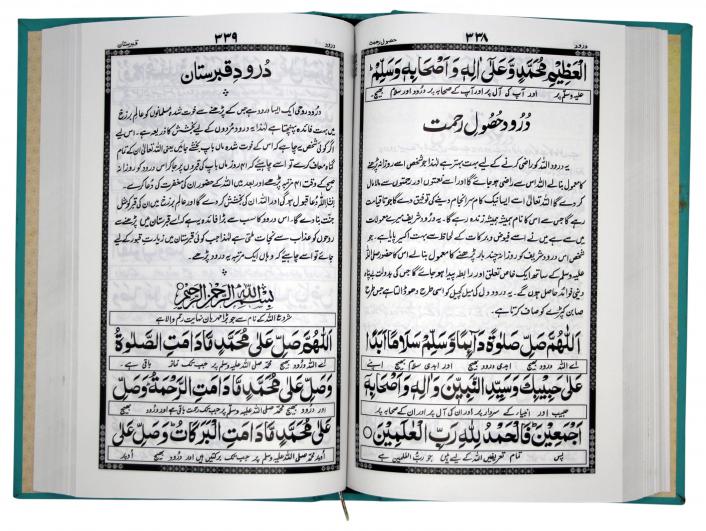 درود
حصول رحمت
۳۳۸
الْعَظِيْمِ مُحَمَّدٍ وَّعَلٰى اٰلِهٖ وَاَصْحَابِهٖ وَسَلِّمْ
علیہ وسلم پر اور آپ کی آل پر اور آپ کے صحابہ پر درود اور سلام بھیج۔
درود حصول رحمت
یہ درود اللہ کو راضی کرنے کے لیے بہت بہتر ہے لہٰذا جو شخص اسے روزانہ پڑھنے
کا معمول بنالے اللہ اس سے راضی ہو جائے گا اور اسے نعمتوں اور رحمتوں سے مالا مال
کر دے گا اللہ اسے ایسا نیک کام سرانجام دینے کی توفیق دے گا جو تا قیامت
رہے گا جس سے اس کا نام ہمیشہ ہمیشہ زندہ رہے گا۔ یہ درود شریف میرے معمولات
میں سے ہے میں نے اسے فیوض و برکات کے لحاظ سے بہت اکسیر پایا ہے۔ جو
شخص اس درود شریف کو روزانہ چند بار پڑھنے کا معمول بنالے اس کا حضور صلی اللہ
علیہ وسلم کے ساتھ ایک خاص تعلق اور رابطہ پیدا ہو جائے گا جس کی بدولت بے پناہ
دینی فوائد حاصل ہوں گے۔ یہ درود دل کی میل کچیل کو اسی طرح دھو ڈالتا ہے جس طرح
صابن کپڑے کو صاف کرتا ہے۔
اَللّٰهُمَّ صَلِّ صَلٰوةً دَآئِمًا وَّسَلِّمْ سَلَامًا اَبَدًا
اے اللہ درود بھیج ہمیشہ اور ابدی سلام بھیج اپنے
عَلٰى حَبِيْبِكَ وَسَيِّدِ النَّبِيِّيْنَ وَاٰلِهٖ وَاَصْحَابِهٖ
حبیب اور انبیاء کے سردار پر اور ان کی آل پر اور ان کے صحابہ پر
اَجْمَعِيْنَ فَالْحَمْدُ لِلّٰهِ رَبِّ الْعٰلَمِيْنَ
پس تمام تعریفیں اللہ کے لیے ہیں جو رب العالمین ہے
درود
قبرستان
۳۳۹
درود قبرستان
درود روحی ایک ایسا درود ہے جس کے پڑھنے سے فوت شدہ مسلمانوں کو عالم برزخ
میں بہت فائدہ پہنچتا ہے لہٰذا یہ درود مردوں کے لیے بخشش کا ذریعہ ہے۔ اس لیے
اگر کوئی شخص یہ چاہے کہ اس کے فوت شدہ ماں باپ بخشے جائیں یعنی اللہ تعالیٰ ان کے تمام
گناہ معاف کر دے تو اسے چاہیے کہ ۴۱ روز ماں باپ کی قبروں پر جا کر اس درود کو روزانہ
صبح کے وقت ۴۱ مرتبہ پڑھے اور بعد میں اللہ کے حضور ان کی مغفرت کی دعا کرے۔
انشاء اللہ دعا قبول ہوگی اور اللہ ان کی بخشش کر دے گا اور عالم برزخ میں ان کی قبر کو مثل
جنت بنا دے گا۔ اس درود کا سب سے بڑا فائدہ یہ ہے کہ اسے قبرستان میں پڑھنے سے
روحوں کو عذاب سے نجات ملتی ہے لہٰذا جب کوئی قبرستان میں زیارت قبور کے لیے
جائے تو اسے چاہیے کہ وہاں ایک مرتبہ یہ درود پڑھے۔
بِسْمِ اللّٰهِ الرَّحْمٰنِ الرَّحِيْمِ
شروع اللہ کے نام سے جو بڑا مہربان نہایت رحم والا ہے
اَللّٰهُمَّ صَلِّ عَلٰى مُحَمَّدٍ مَّا دَامَتِ الصَّلٰوةُ
اے اللہ درود بھیج محمد صلی اللہ علیہ وسلم پر جب تک نماز باقی ہے۔
وَصَلِّ عَلٰى مُحَمَّدٍ مَّا دَامَتِ الرَّحْمَةُ وَصَلِّ
اور درود بھیج محمد صلی اللہ علیہ وسلم پر جب تک رحمت باقی ہے اور درود بھیج
عَلٰى مُحَمَّدٍ مَّا دَامَتِ الْبَرَكَاتُ وَصَلِّ عَلٰى
اوپر محمد صلی اللہ علیہ وسلم پر جب تک برکتیں ہیں اور درود بھیج اوپر